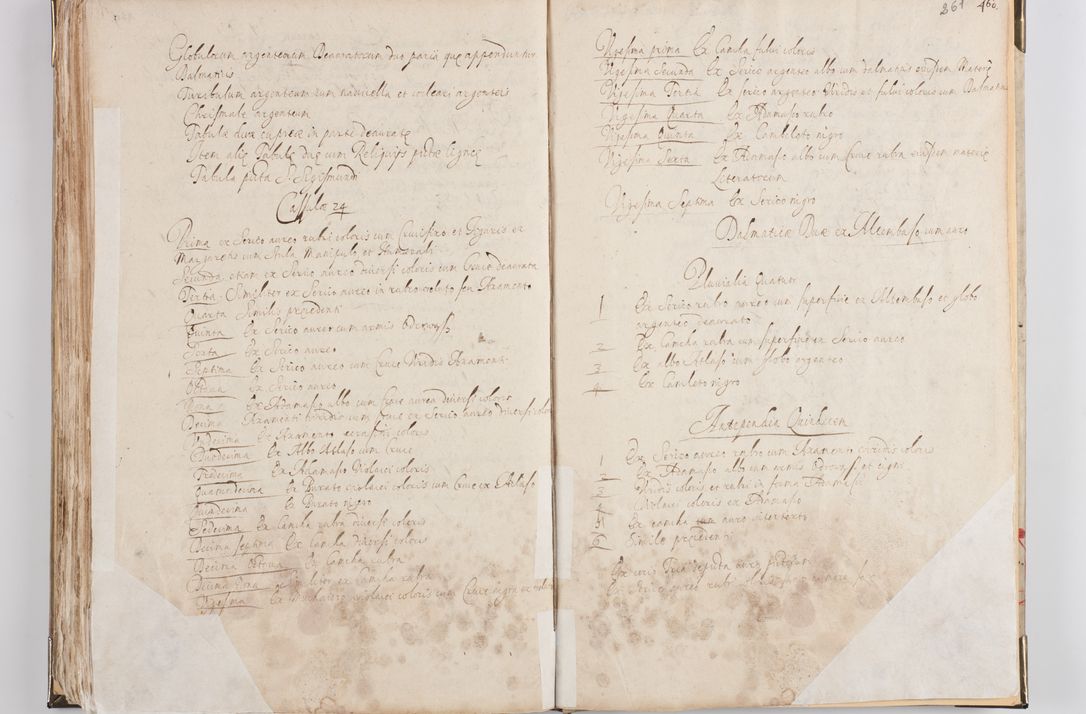 Globulorum argenteorum Deauratorum duo paria quæ appenduntur
Dalmaticis
Turibulum argenteum cum navicella et cocleari argenteis
Chrismale argenteum
Tabulæ duæ cupreæ in parte deauratę
Item alię Tabulę duę cum Reliquijs pictæ ligneę
Tabula picta S. Sigismundi
Casulæ 24
Prima ex Serico aureo rubri coloris cum Crucifixo et
Margaretis cum Stula Manipulo, et Humerali
Secunda etiam ex Serico aureo diversi coloris cum Cruce deaurata
Tertia Similiter ex Serico aureo in rubro seu Axamento
Quarta Similis præcedenti
Quinta Ex Serico aureo cum armis Odrowąsz
Sexta Ex Serico aureo
Septima Ex Serico aureo cum Cruce Viridis Axamenti
Octava Ex Serico aureo
Nona Ex Adamasco albo cum Cruce aurea diversi coloris
Decima Axamenti Viridis cum Cruce ex Serico aureo diversi coloris
Undecima Ex Axamento coloris
Duodecima Ex Albo Atlaso cum Cruce
Tredecima Ex Adamasco Violacei coloris
Quatuordecima Ex Burato violacei coloris cum Cruce ex Atlaso
Quindecima Ex Burato nigro
Sedecima Ex Camcha rubra diversi coloris
Decima Septima Ex Camcha diversi coloris
Decima Octava Ex Camcha rubra
Decima Nona Similiter ex Camcha rubra
Vigesima Ex violacei coloris cum Cruce nigra ex
261 460.
Vigesima prima Ex Camcha fulvi coloris
Vigesima Secunda Ex Serico argenteo albo cum dalmatis eiusdem Materię
Vigesima Tertia Ex Serico argenteo Viridis et fulvi coloris cum Dalmatis
Vigesima Quarta Ex Adamasco rubro
Vigesima Quinta Ex Camloto nigro
Vigesima Sexta Ex Adamasco albo cum Cruce rubra eiusdem materię
Literatorum
Vigesima Septima Ex Serico nigro
Dalmaticæ Duæ ex Altembaso cum auro
Pluvialia Quatuor
1 Ex Serico rubro aureo cum superficie ex Altembaso et globo
argenteo deaurato
2 Ex Camcha rubra cum superficie ex Serico aureo
3 Ex albo Atlaso cum globo argenteo
4 Ex Camloto nigro
Antependia Quindecem
1 Ex Serico aureo rubro cum Axamento viridis coloris
2 Ex Adamasco albo cum armis Odrowąsz et cigni
3 Viridis coloris et rubri in forma Adamasci
4 Violacei coloris ex Adamasco
5 Ex camcha cum auro intertexto
6 Similis præcedenti
Ex corio Tela depicta
Ex Serico aureo rubri